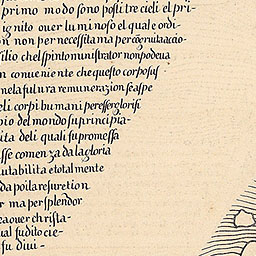 primo modo sono posti tre cieli el pri-
ignito ouer luminoso el qual e ordi-
non per necessita ma per cōgruita acio-
silio chel spinto munstrator non podeua
conueniente che questo corpo sus
ne la futura remunerazion se aspe
eli corpi humani per esser glorifi
pio del mondo su principia-
ita deli quali su promessa
sse comenza da la gloria
utabilita e total mente
da poi la resuretion
ma per splendor
ea ouer christa-
ual su dito cie-
su diui-